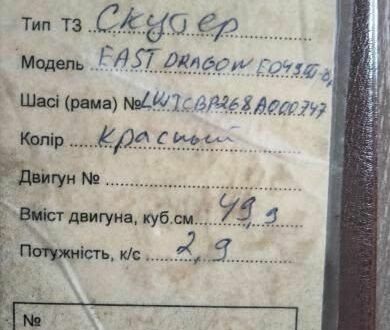 Тип ТЗ Скутер
Модель EAST DRAGON E043
Шасі (рама) № LWTCBP268A000747
Колір красный
Двигун №
Вміст двигуна, куб.см 49,9
Потужність, к/с 2,9
№